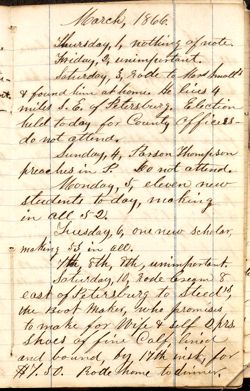 March, 1866.
Thursday, 1, nothing of note.
Friday, 2, unimportant.
Saturday, 3, Rode to
& found him at home. He lives 4
miles S.E. of Petersburg. Election
held to day for County Officers—
do not attend.
Sunday, 4, Parson Thompson
preaches in P. Do not attend.
Monday, 5, eleven new
students to day, making
in all 52.
Tuesday, 6, one new scholar,
making 53 in all.
7th 8th, 9th, unimportant.
Saturday, 10, Rode 8
east of Petersburg to Steed's,
the Boot Maker, who promises
to make for Wife & self 2 prs
Shoes of fine Calf, lined
and bound, by 17th inst, for
$7.50. Rode home to dinner.